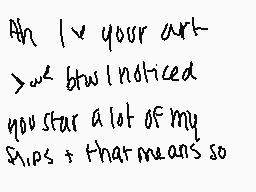 Ah I ♥ your art
>ω< btw I noticed
you star a lot of my
flips + that means so